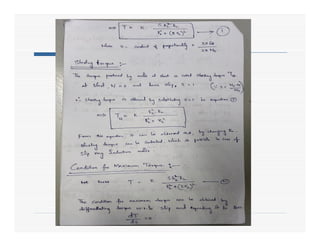 ⇒ T = K · S E₂² R₂ / R₂² + (S X₂)² → ①
where K = constant of proportionality = 3×60 / 2π Ns
Starting torque :-
The torque produced by motor at start is called starting torque Tst
at start, N = 0 and hence slip, S = 1
∴ Starting torque is obtained by substituting S = 1 in equation ①
⇒ Tst = K · E₂² R₂ / R₂² + X₂²
From this equation it can be observed that, by changing the
starting torque can be controlled, which is possible in case of
slip ring Induction motor.
Condition for Maximum Torque :-
We have T = K · S E₂² R₂ / R₂² + (S X₂)²
The condition for maximum torque can be obtained by
differentiating torque w.r.to slip and equating to be zero
dT/ds = 0